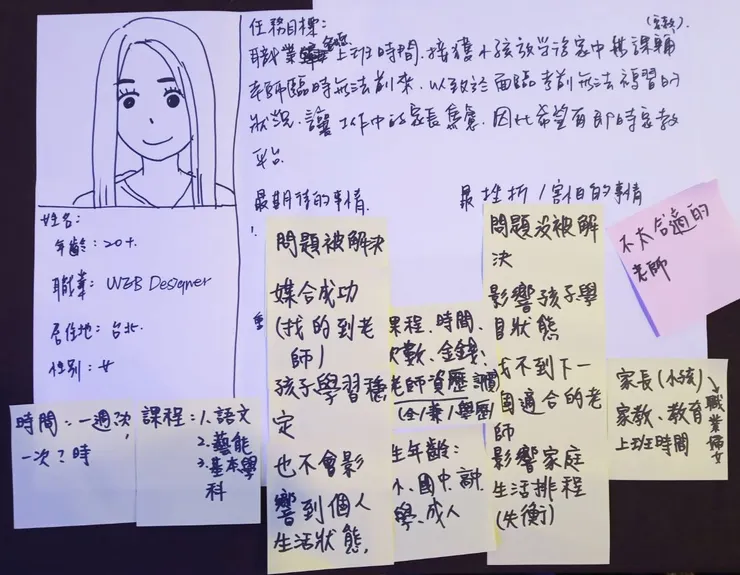 任務目標:
(家教).
職業婦女上班時間,接獲小孩放學後家中無課輔
老師臨時無法前來,以致於面臨考前無法複習的
狀況,讓工作中的家長焦慮,因此希望有即時家教
平台.
最期待的事情
最挫折/害怕的事情
姓名:
年齡:20+.
職業:WEB Designer
居住地:台北.
性別:女
時間:一週?次,
一次?時
課程:1.語文
2.藝能
3.基本學
科
問題被解決
媒合成功
(找的到老
師)
孩子學習穩
定
也不會影
響到個人
生活狀態,
課程、時間、
次數、金錢、
老師資歷
(全/兼/學歷)
生年齡:
小、國中、
學、成人
問題沒被解
決
影響孩子學
習狀態
找不到下一
個適合的老
師
影響家庭
生活排程
(失衡)
不太合適的
老師
家長(小孩)
家教、教育
上班時間
→職業婦女